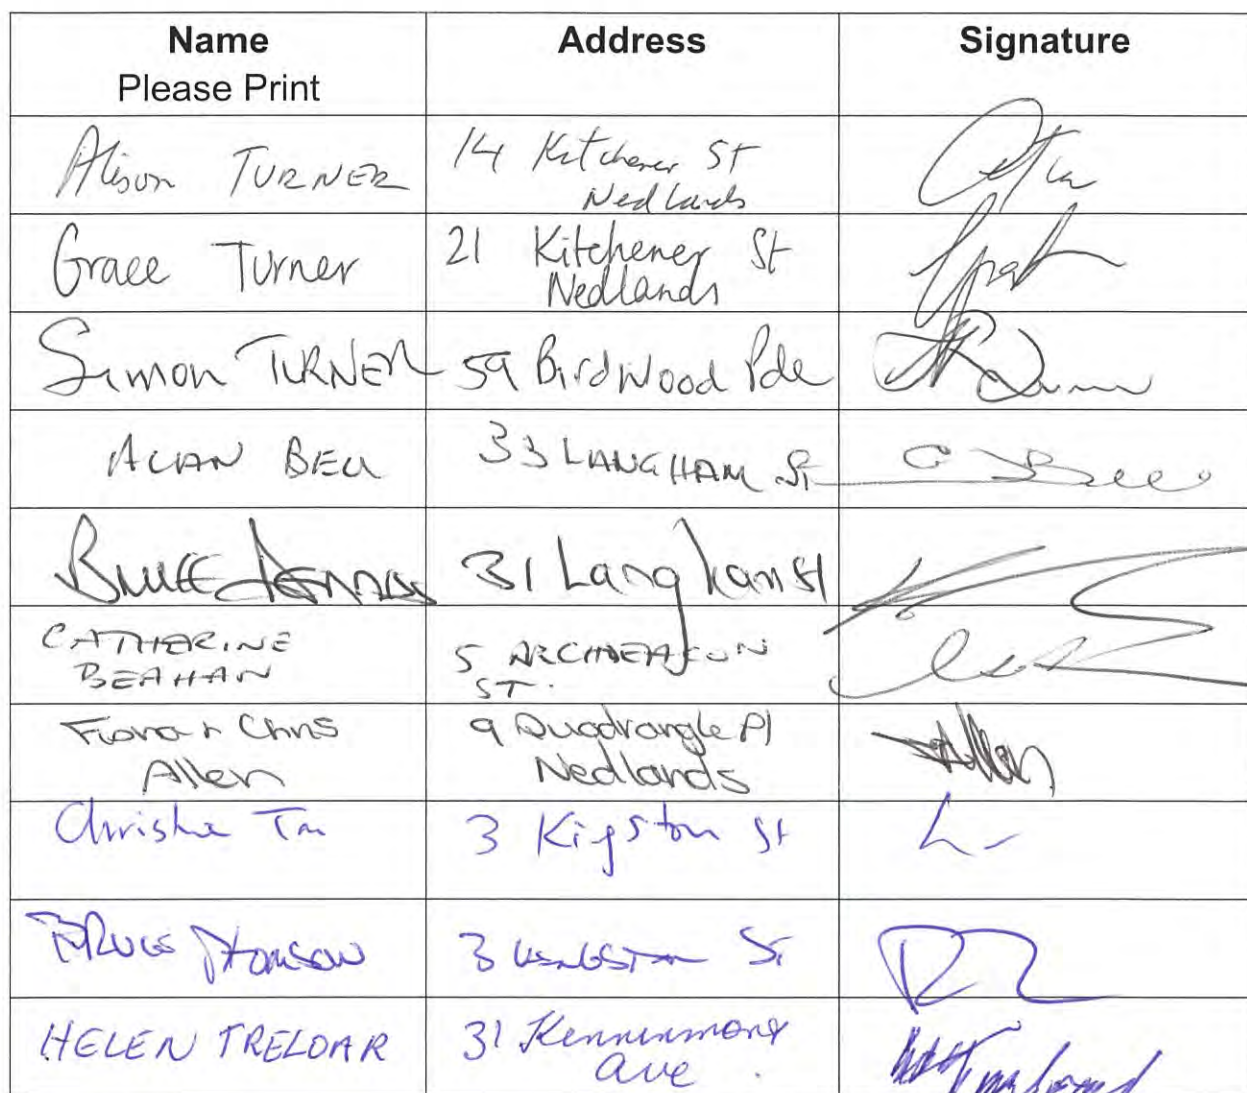 Name Address Signature
Please Print
Alison TURNER 14 Kitchener St
Nedlands
Grace Turner 21 Kitchener St
Nedlands
Simon TURNER 59 Birdwood Pde
ALAN BELL 33 LANGHAM St
31 Langham St
CATHERINE
BEAHAN 5 ARCHDEACON
ST.
Fiona & Chris
Allen 9 Quadrangle Pl
Nedlands
3 Kigston St
BRUCE 3 St
HELEN TRELOAR 31 Kenninmont
Ave